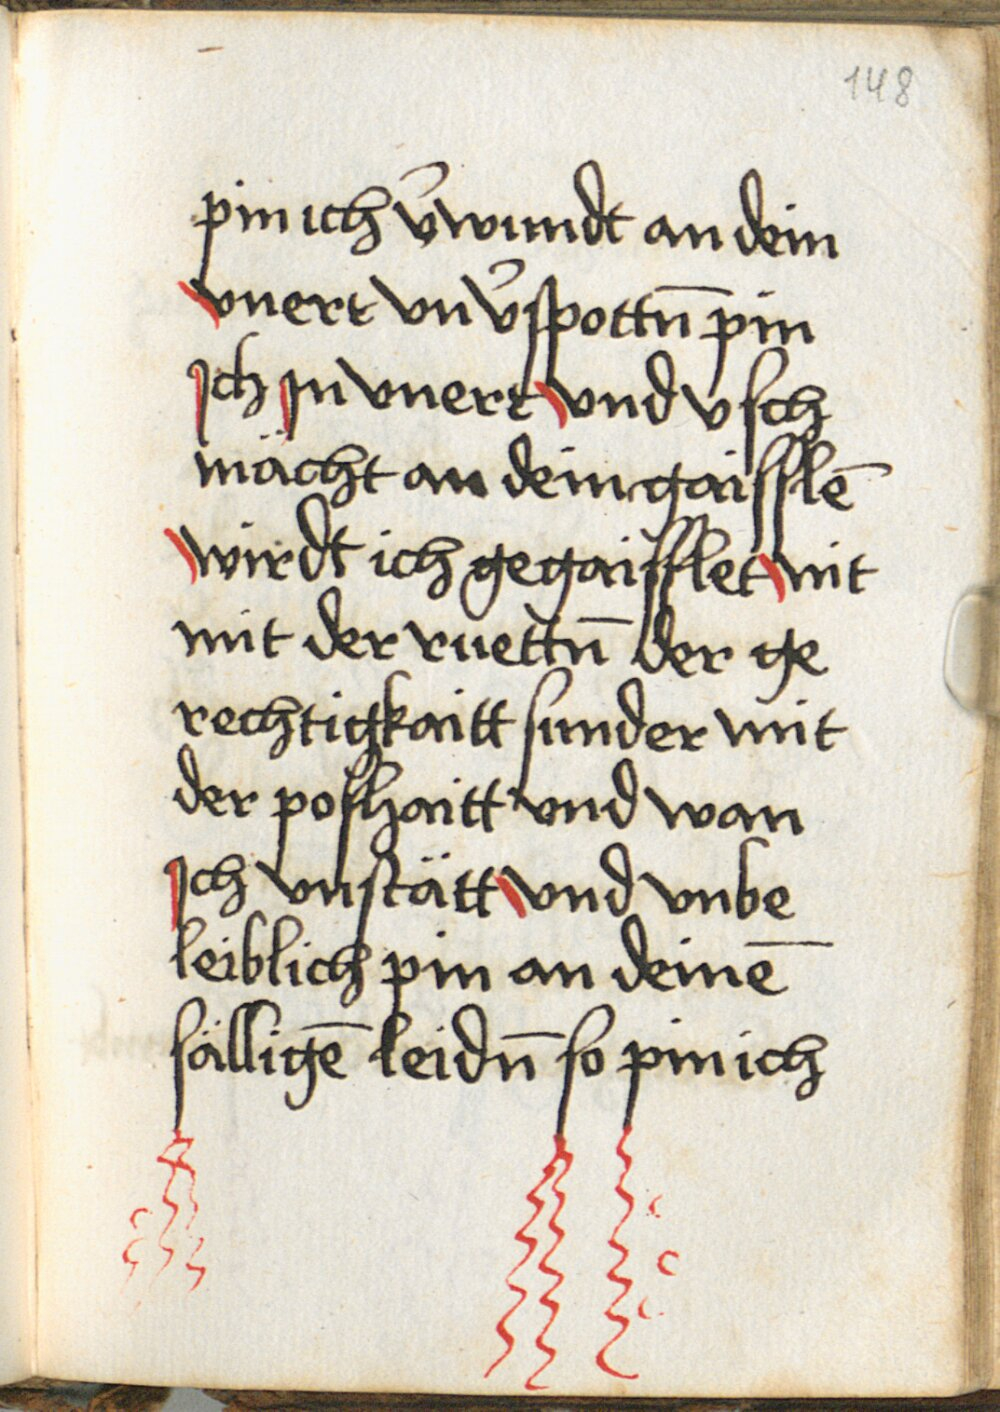 148
pin ich v̄wundt an dein
vnert vn v̄spottn̄ pin
Ich In vnert vnd vsch
mächt an dein gaifflē
wirdt ich gegaifflet nit
mit der ruettn̄ der ge
rechtigkaitt sunder mit
der poshaitt vnd wan
Ich vnstätt vnd vnbe
leiblich pin an deinē
sälligē leidn̄ so pin ich